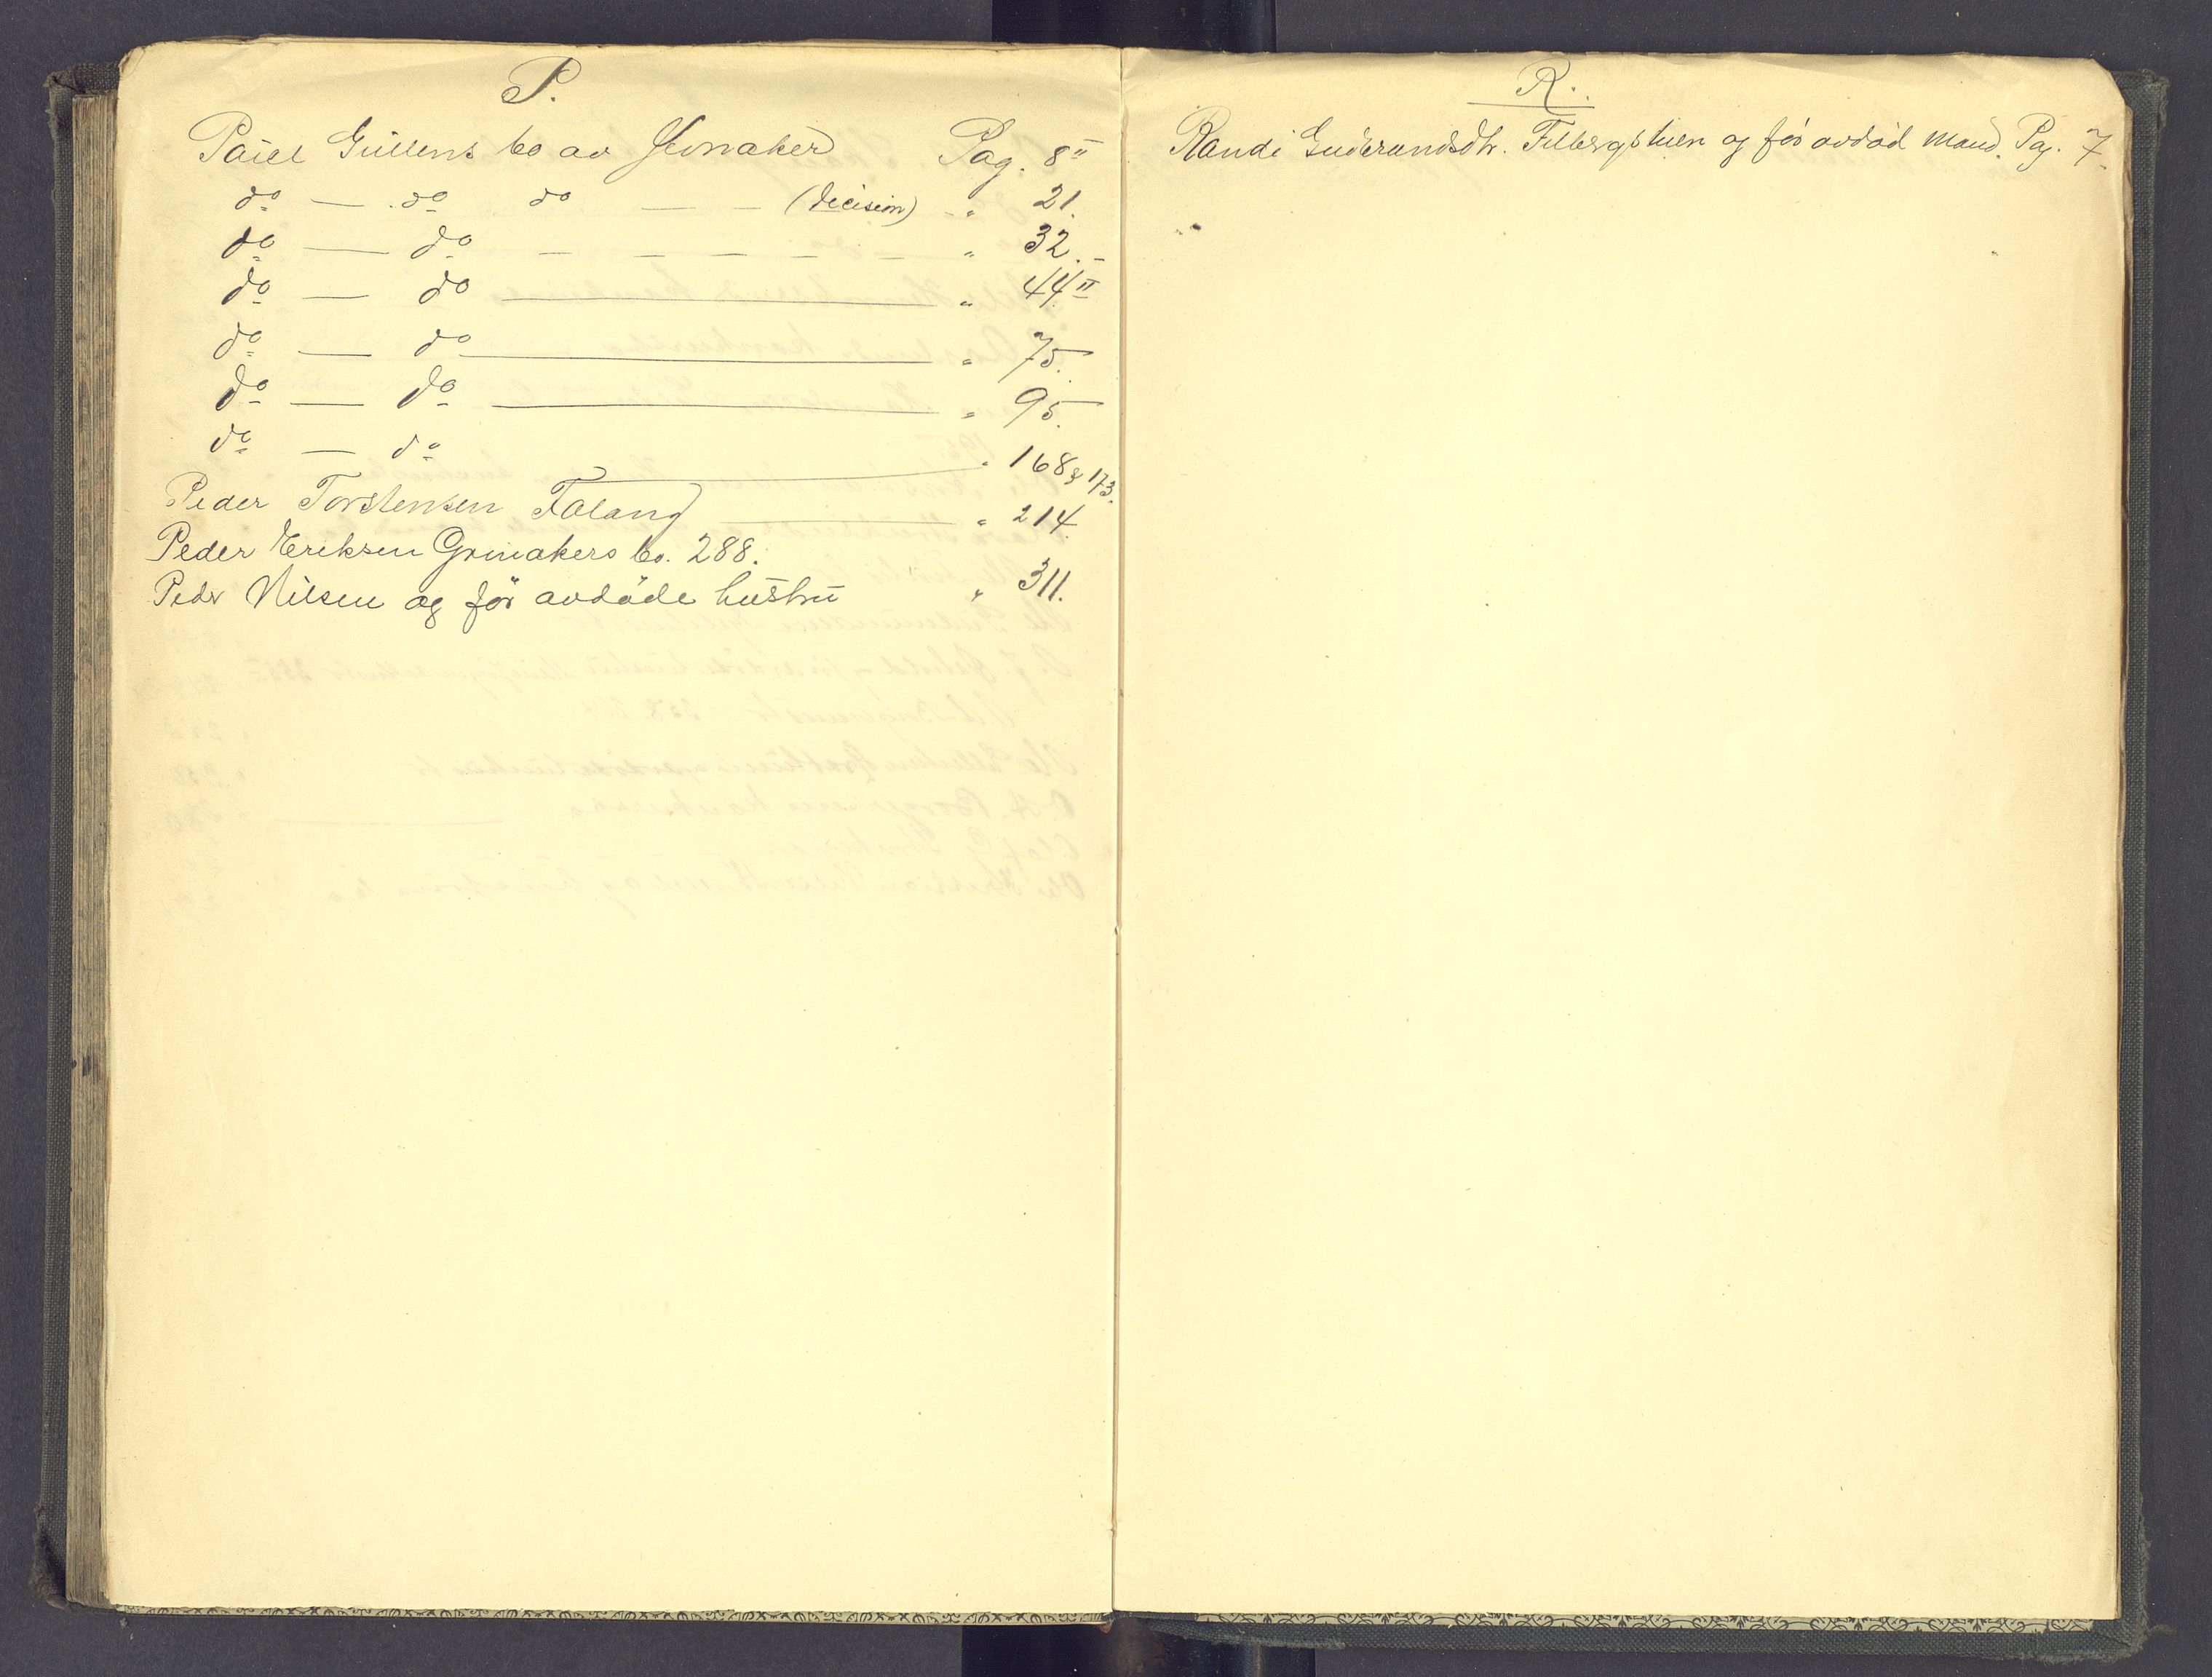 P.
Paul Gullens bo av Jevnaker Pag. 8 II
do — do do — — (decision) - " 21.
do — do — — — — — — " 32. -
do — do — " 44 II
do — do — " 75.
do — do — " 95.
do — do — " 168 & 173.
Peder Torstensen Falang — " 214.
Peder Eriksen Grinakers bo. 288.
Peder Nilsen og før avdøde hustru " 311.
R.
Randi Gudbrandsdtr. Filbergstuen og før avdød mand. Pag. 7.